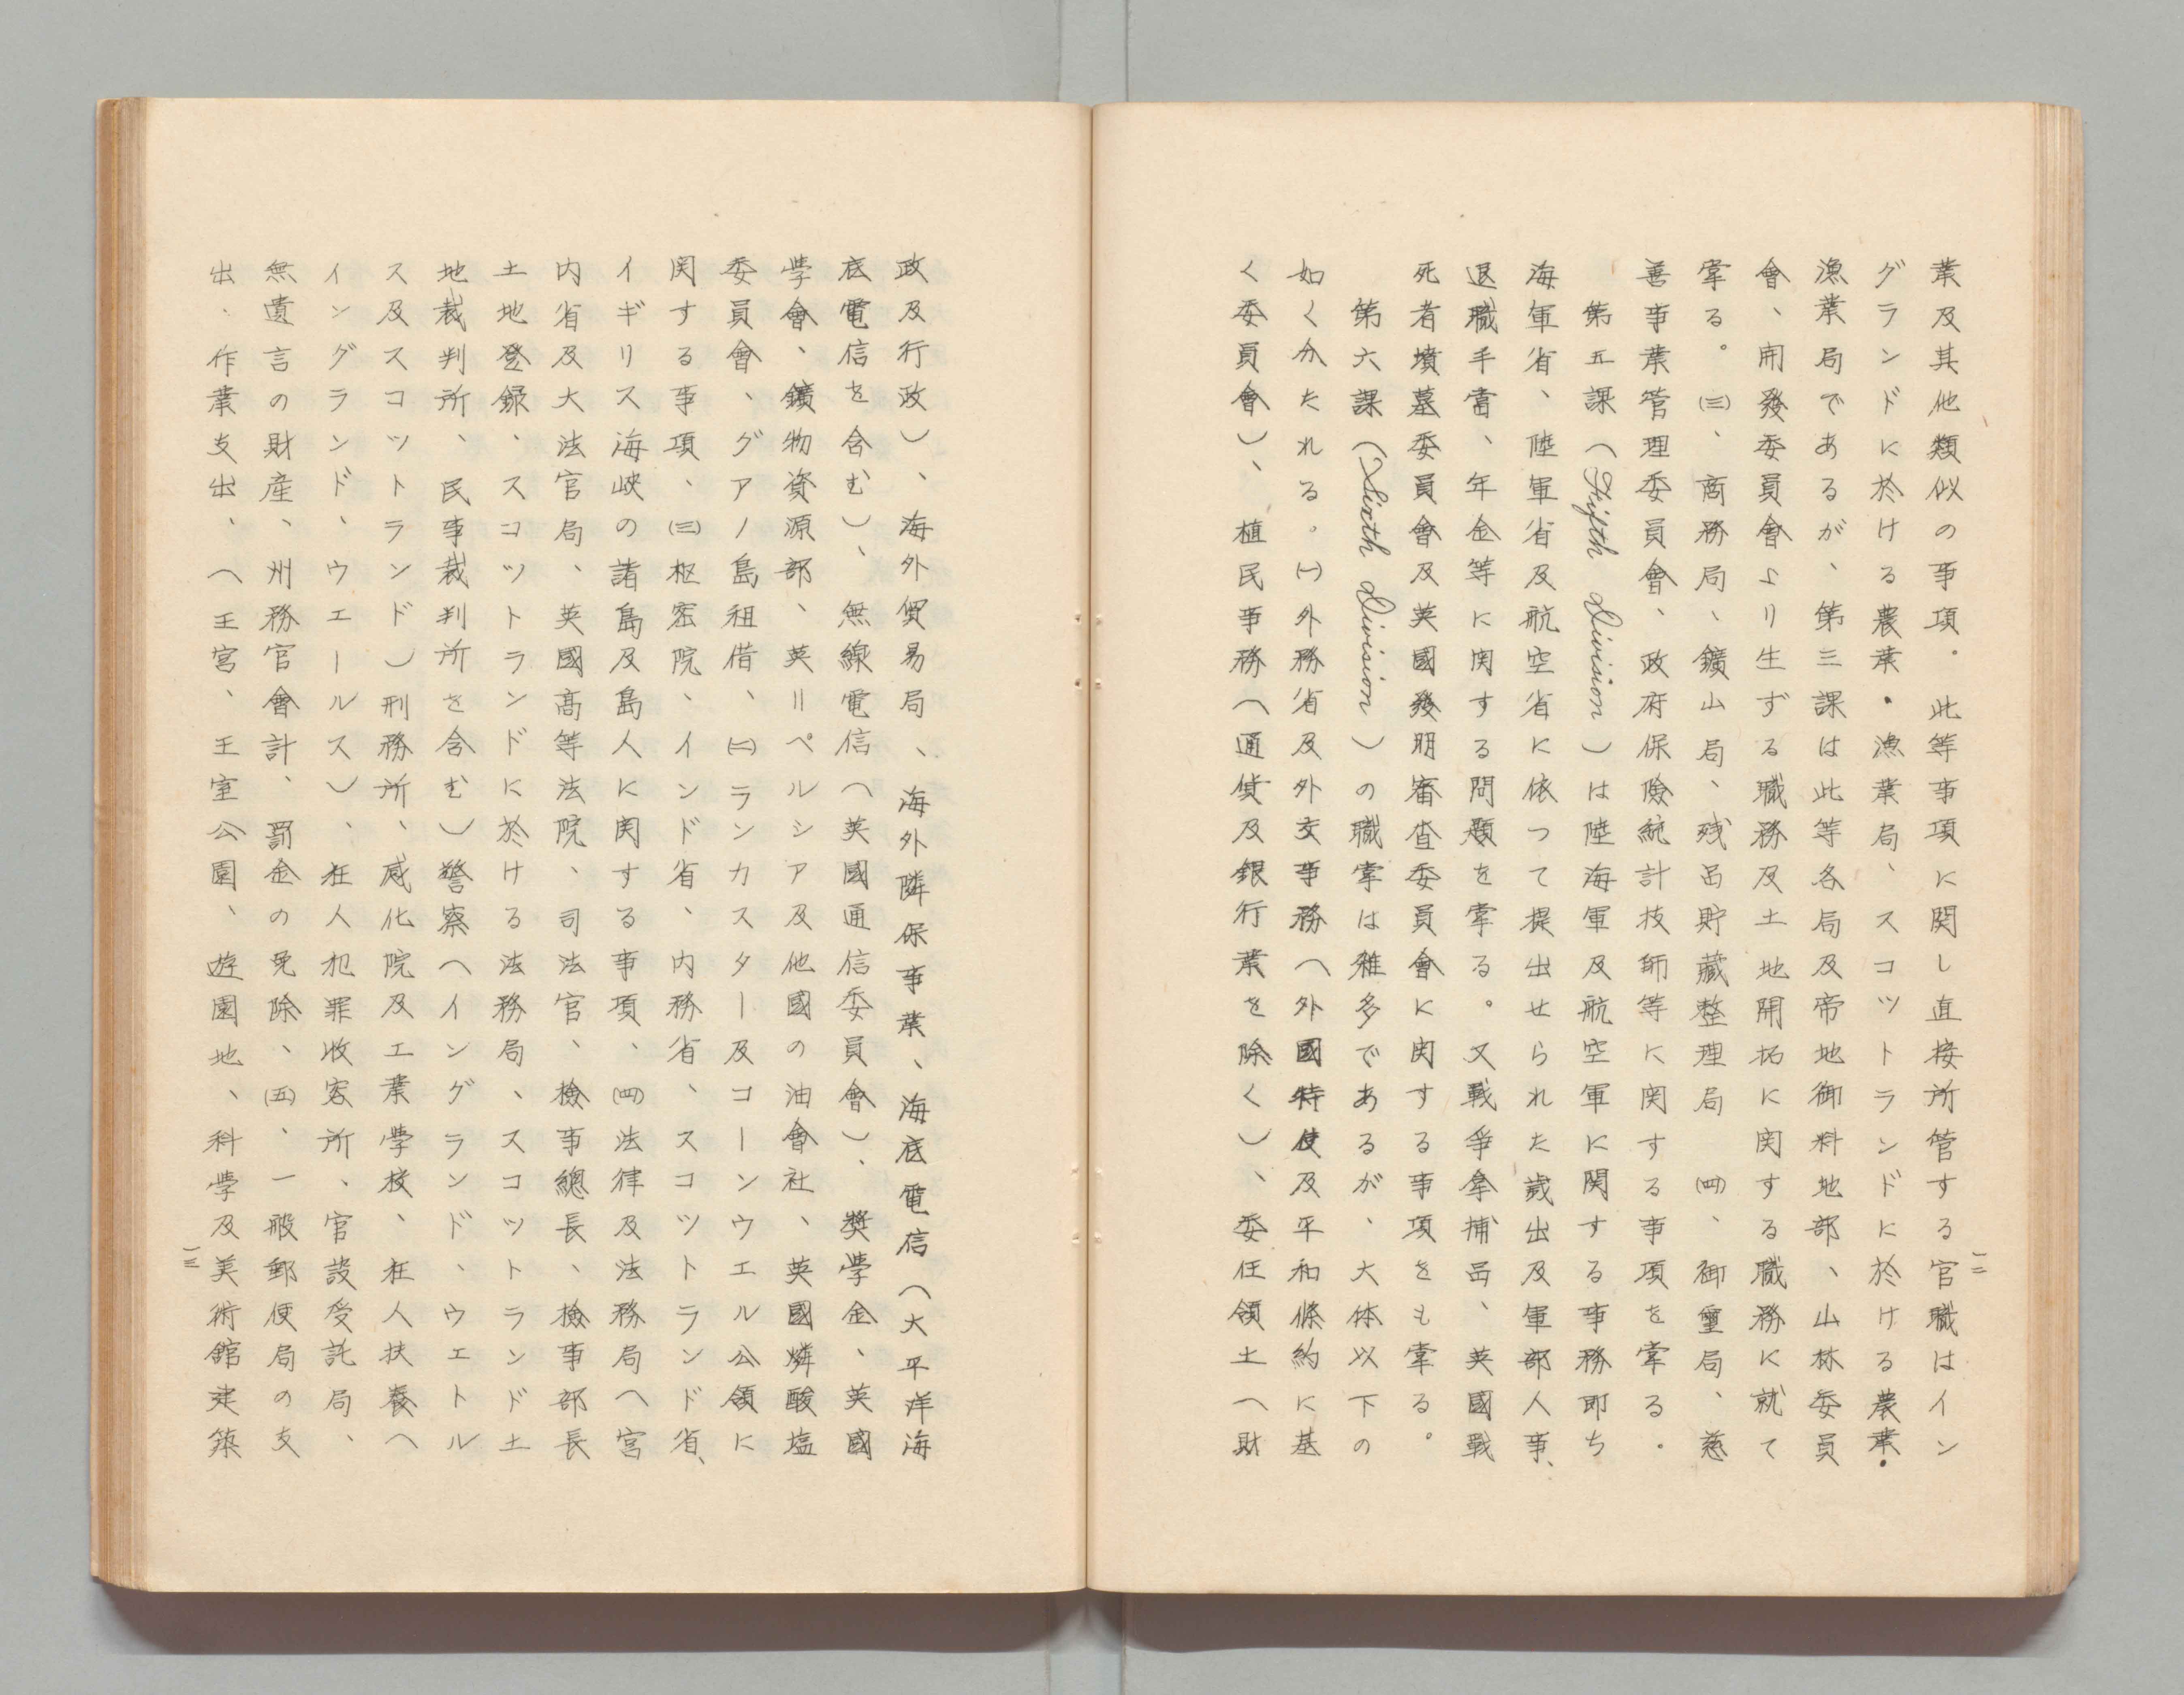 業及其他類似の事項。此等事項に関し直接所管する官職はイン
グランドに於ける農業・漁業局、スコットランドに於ける農業・
漁業局であるが、第三課は此等各局及帝地御料地部、山林委員
會、開發委員會より生ずる職務及土地開拓に関する職務に就て
掌る。㈢、商務局、鑛山局、残品貯藏整理局 ㈣、御璽局、慈
善事業管理委員會、政府保險統計技師等に関する事項を掌る。
第五課（Fifth Division）は陸海軍及航空軍に関する事務即ち
海軍省、陸軍省及航空省に依つて提出せられた歳出及軍部人事、
退職手當、年金等に関する問題を掌る。又戰爭拿捕品、英國戰
死者墳墓委員會及英國發明審査委員會に関する事項をも掌る。
第六課（Sixth Division）の職掌は雜多であるが、大体以下の
如く分たれる。㈠外務省及外交事務（外國特使及平和條約に基
く委員會）、植民事務（通貨及銀行業を除く）、委任領土（財
一二
政及行政）、海外貿易局、海外隣保事業、海底電信（大平洋海
底電信を含む）、無線電信（英國通信委員會）、奬學金、英國
學會、鑛物資源部、英＝ペルシア及他國の油會社、英國燐酸塩
委員會、グアノ島租借、㈡ランカスター及コーンウエル公領に
関する事項、㈢枢密院、インド省、内務省、スコットランド省、
イギリス海峽の諸島及島人に関する事項、㈣法律及法務局（宮
内省及大法官局、英國高等法院、司法官、檢事總長、檢事部長
土地登録、スコットランドに於ける法務局、スコットランド土
地裁判所、民事裁判所を含む）警察（イングランド、ウェトル
ス及スコットランド）刑務所、感化院及工業學校、狂人扶養（
イングランド、ウエールス）、狂人犯罪收容所、官設受託局、
無遺言の財産、州務官會計、罰金の免除、㈤、一般郵便局の支
出、作業支出、（王宮、王室公園、遊園地、科學及美術館建築
一三